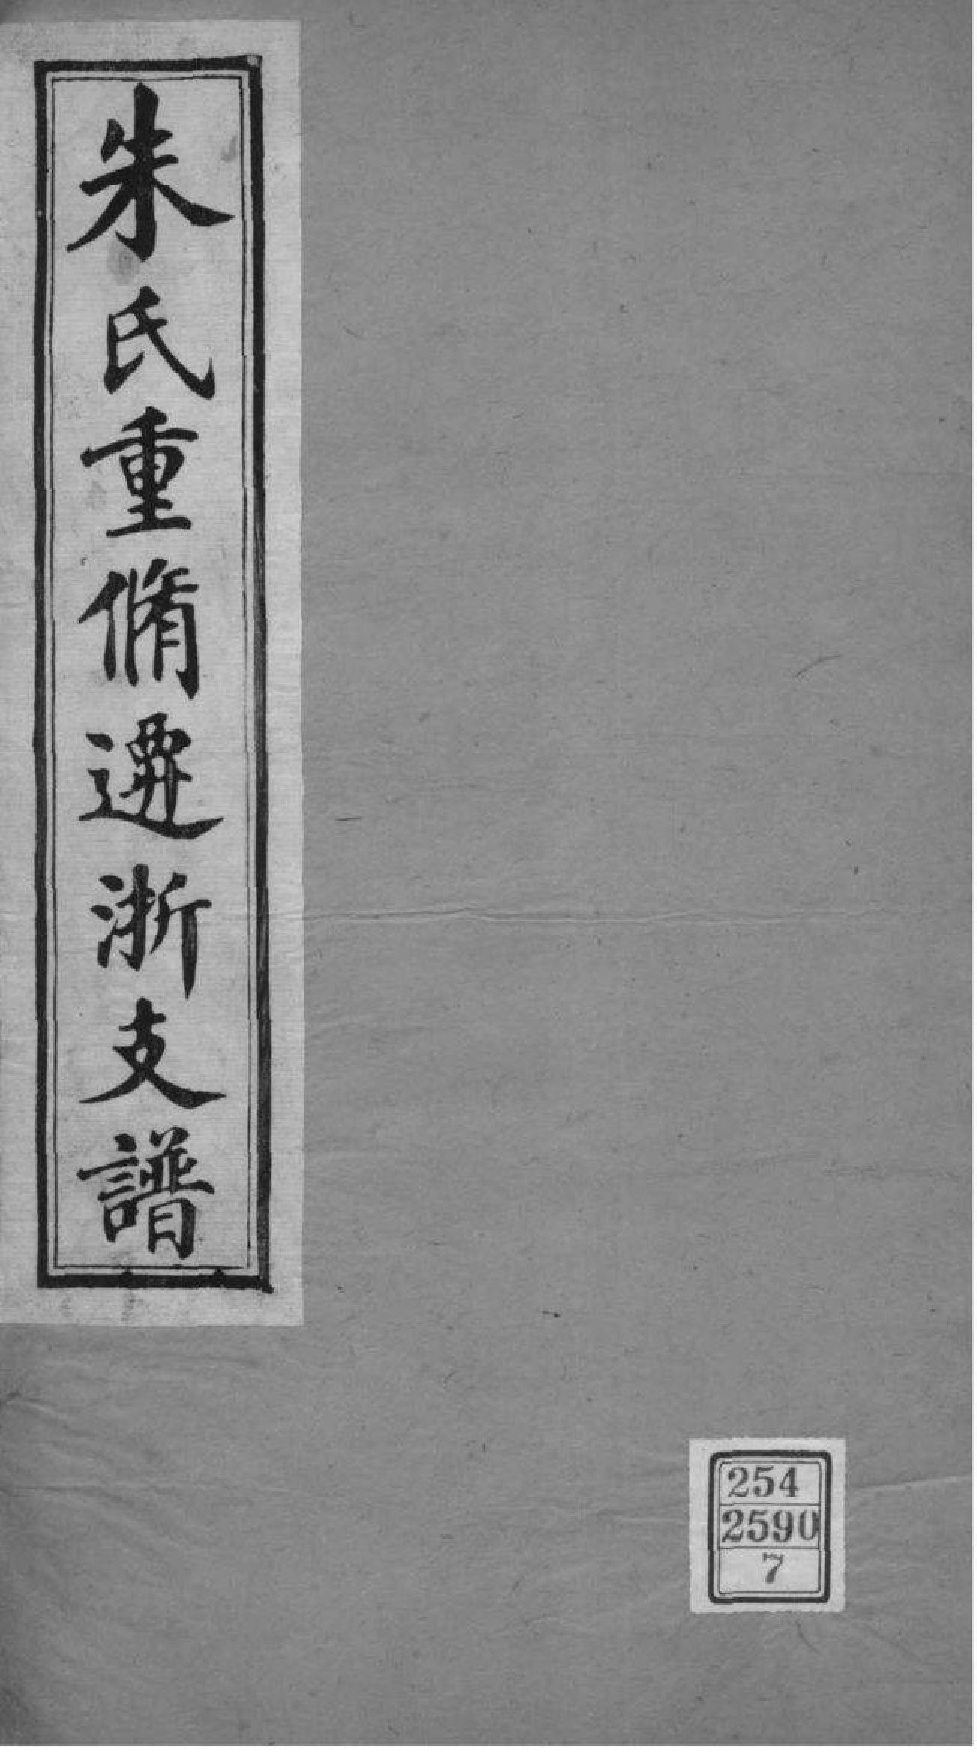 朱氏重脩遷浙支譜
254
2590
7